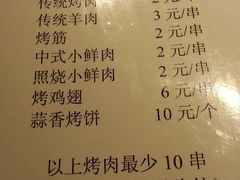 传统烤肉 2 元/串
传统羊肉 3 元/串
烤筋 2 元/串
中式小鲜肉 2 元/串
照烧小鲜肉 2 元/串
烤鸡翅 6 元/串
蒜香烤饼 10 元/个
以上烤肉最少 10 串